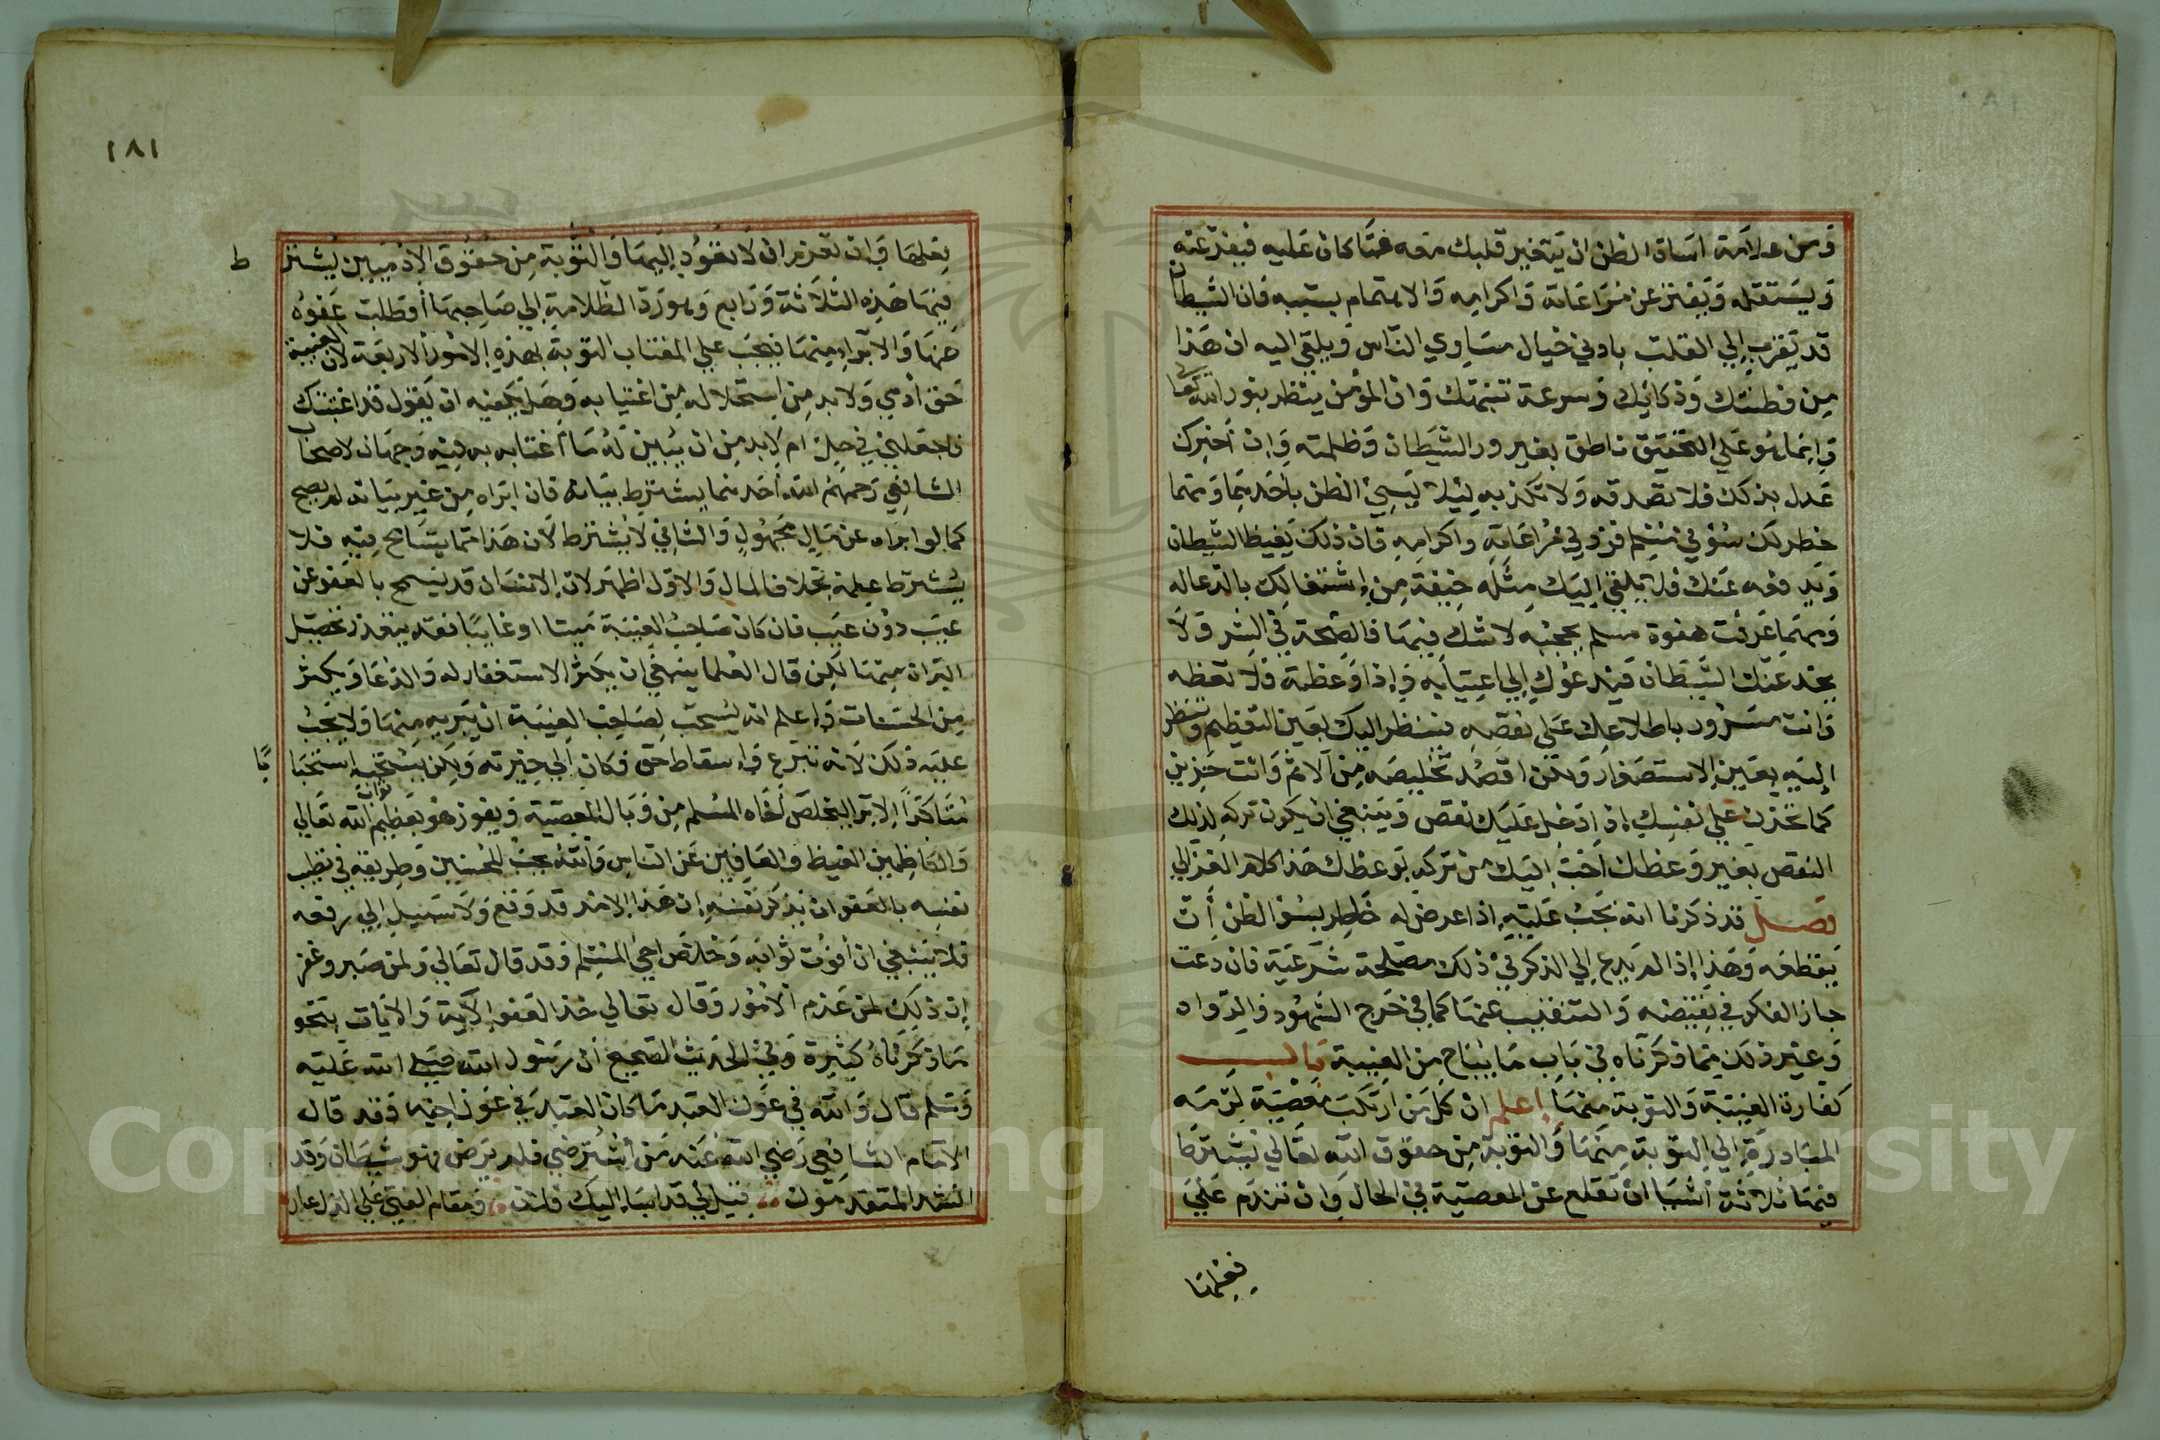 ومن علامة اساة الظن ان يتغير قلبك معه عما كان عليه فينفر عنه
ويستثقله ويفتر عن مراعاته واكرامه والاهتمام بسببه فان الشيطان
قد يقرب الي القلب بادني خيال مساوي الناس ويلقي اليه ان هذا
من فطنتك وذكائك وسرعة تنبهك وان المؤمن ينظر بنور الله تعا
وانما هو علي التحقيق ناطق بغرور الشيطان وظلمته وان أخبرك
عدل بذلك فلا تصدقه ولا تكذبه ليلا يسيء الظن باحدهما ومهما
خطر لك سوء في مسلم فزد في مراعاته واكرامه فان ذلك يغيظ الشيطان
ويدفعه عنك فلا يلقي اليك مثله خيفة من اشتغالك بالدعا له
ومهما عرفت هفوة مسلم بحجة لا شك فيها فانصحه في السر ولا
يخدعنك الشيطان فيدعوك الي اغتيابه واذا وعظته فلا تعظه
وانت مسرور باطلاعك علي نقصه فينظر اليك بعين التعظيم وتنظر
اليه بعين الاستصغار ولكن اقصد تخليصه من الاثم وانت حزين
كما تحزن علي نفسك اذا دخل عليك نقص وينبغي ان يكون تركه لذلك
النقص بغير وعظك احب اليك من تركه بوعظك هذا كلام الغزالي
فصل قد ذكرنا انه يجب عليه اذا عرض له خاطر بسو الظن أن
يقطعه وهذا إذا لم يدع الي الذكر في ذلك مصلحة شرعية فان دعت
جاز الفكر في نقيضه والتنقيب عنها كما في جرح الشهود والرواه
وغير ذلك مما ذكرناه في باب ما يباح من الغيبة باب
كفارة الغيبة والتوبة منها اعلم ان كل من ارتكب معصية لزمه
المبادرة الي التوبة منها والتوبة من حقوق الله تعالي يشترط
فيها ثلاثة أشيا ان تقلع عن المعصية في الحال وان تندم علي
فعلها
١٨١
فعلها وان تعزم ان لا تعود اليها والتوبة من حقوق الادميين يشتر ط
فيها هذه الثلاثة ورابع وهو رد الظلامة إلي صاحبها أو طلب عفوه
عنها والابراء منها فيجب علي المغتاب التوبة بهذه الامور الاربعة لان الغيبة
حق ادمي ولا بد من استحلاله من اغتيابه وهل يكفيه ان يقول قد اغتبتك
فاجعلني في حل ام لا بد من ان يبين له ما أغتابه به فيه وجهان لاصحاب
الشافعي رحمهم الله أحدهما يشترط بيانه فان ابراه من غير بيانه لم يصح
كما لو ابراه عن مال مجهول والثاني لا يشترط لان هذا مما يتسامح فيه فلا
يشترط علمه بخلاف المال والاول اظهر لان الانسان قد يسمح بالعفو عن
عيب دون عيب فان كان صاحب الغيبة ميتا او غايبا فقد يتعذر تحصيل
البراة منها لكن قال العلما ينبغي ان يكثر الاستغفار له والدعا ويكثر
من الحسنات واعلم انه يستحب لصاحب الغيبة ان يبريه منها ولا يجب
عليه ذلك لانه تبرع واسقاط حق فكان الي خيرته ولكن يستحب استحبا با
متاكدا الابرا ليخلص أخاه المسلم من وبال المعصية ويفوز هو بعظيم ثواب الله تعالي
والكاظمين الغيظ والعافين عن الناس والله يحب المحسنين وطريقه في تطيب
نفسه بالعفو ان يذكر نفسه إن هذا الامر قد وقع ولا سبيل الي رفعه
فلا ينبغي ان أفوت ثوابه وخلاص اخي المسلم وقد قال تعالي ولمن صبر وغفر
إن ذلك لمن عزم الأمور وقال تعالي خذ العفو الاية والايات بنحو
ما ذكرناه كثيرة وفي الحديث الصحيح أن رسول الله صلي الله عليه
وسلم قال والله في عون العبد ما كان العبد في عون اخيه وقد قال
الامام الشافعي رضي الله عنه من أسترضي فلم يرض فهو شيطان وقد
انشد المتقدمون قيل لي قد اسا اليك فلان ومقام الفتي علي الذل عار